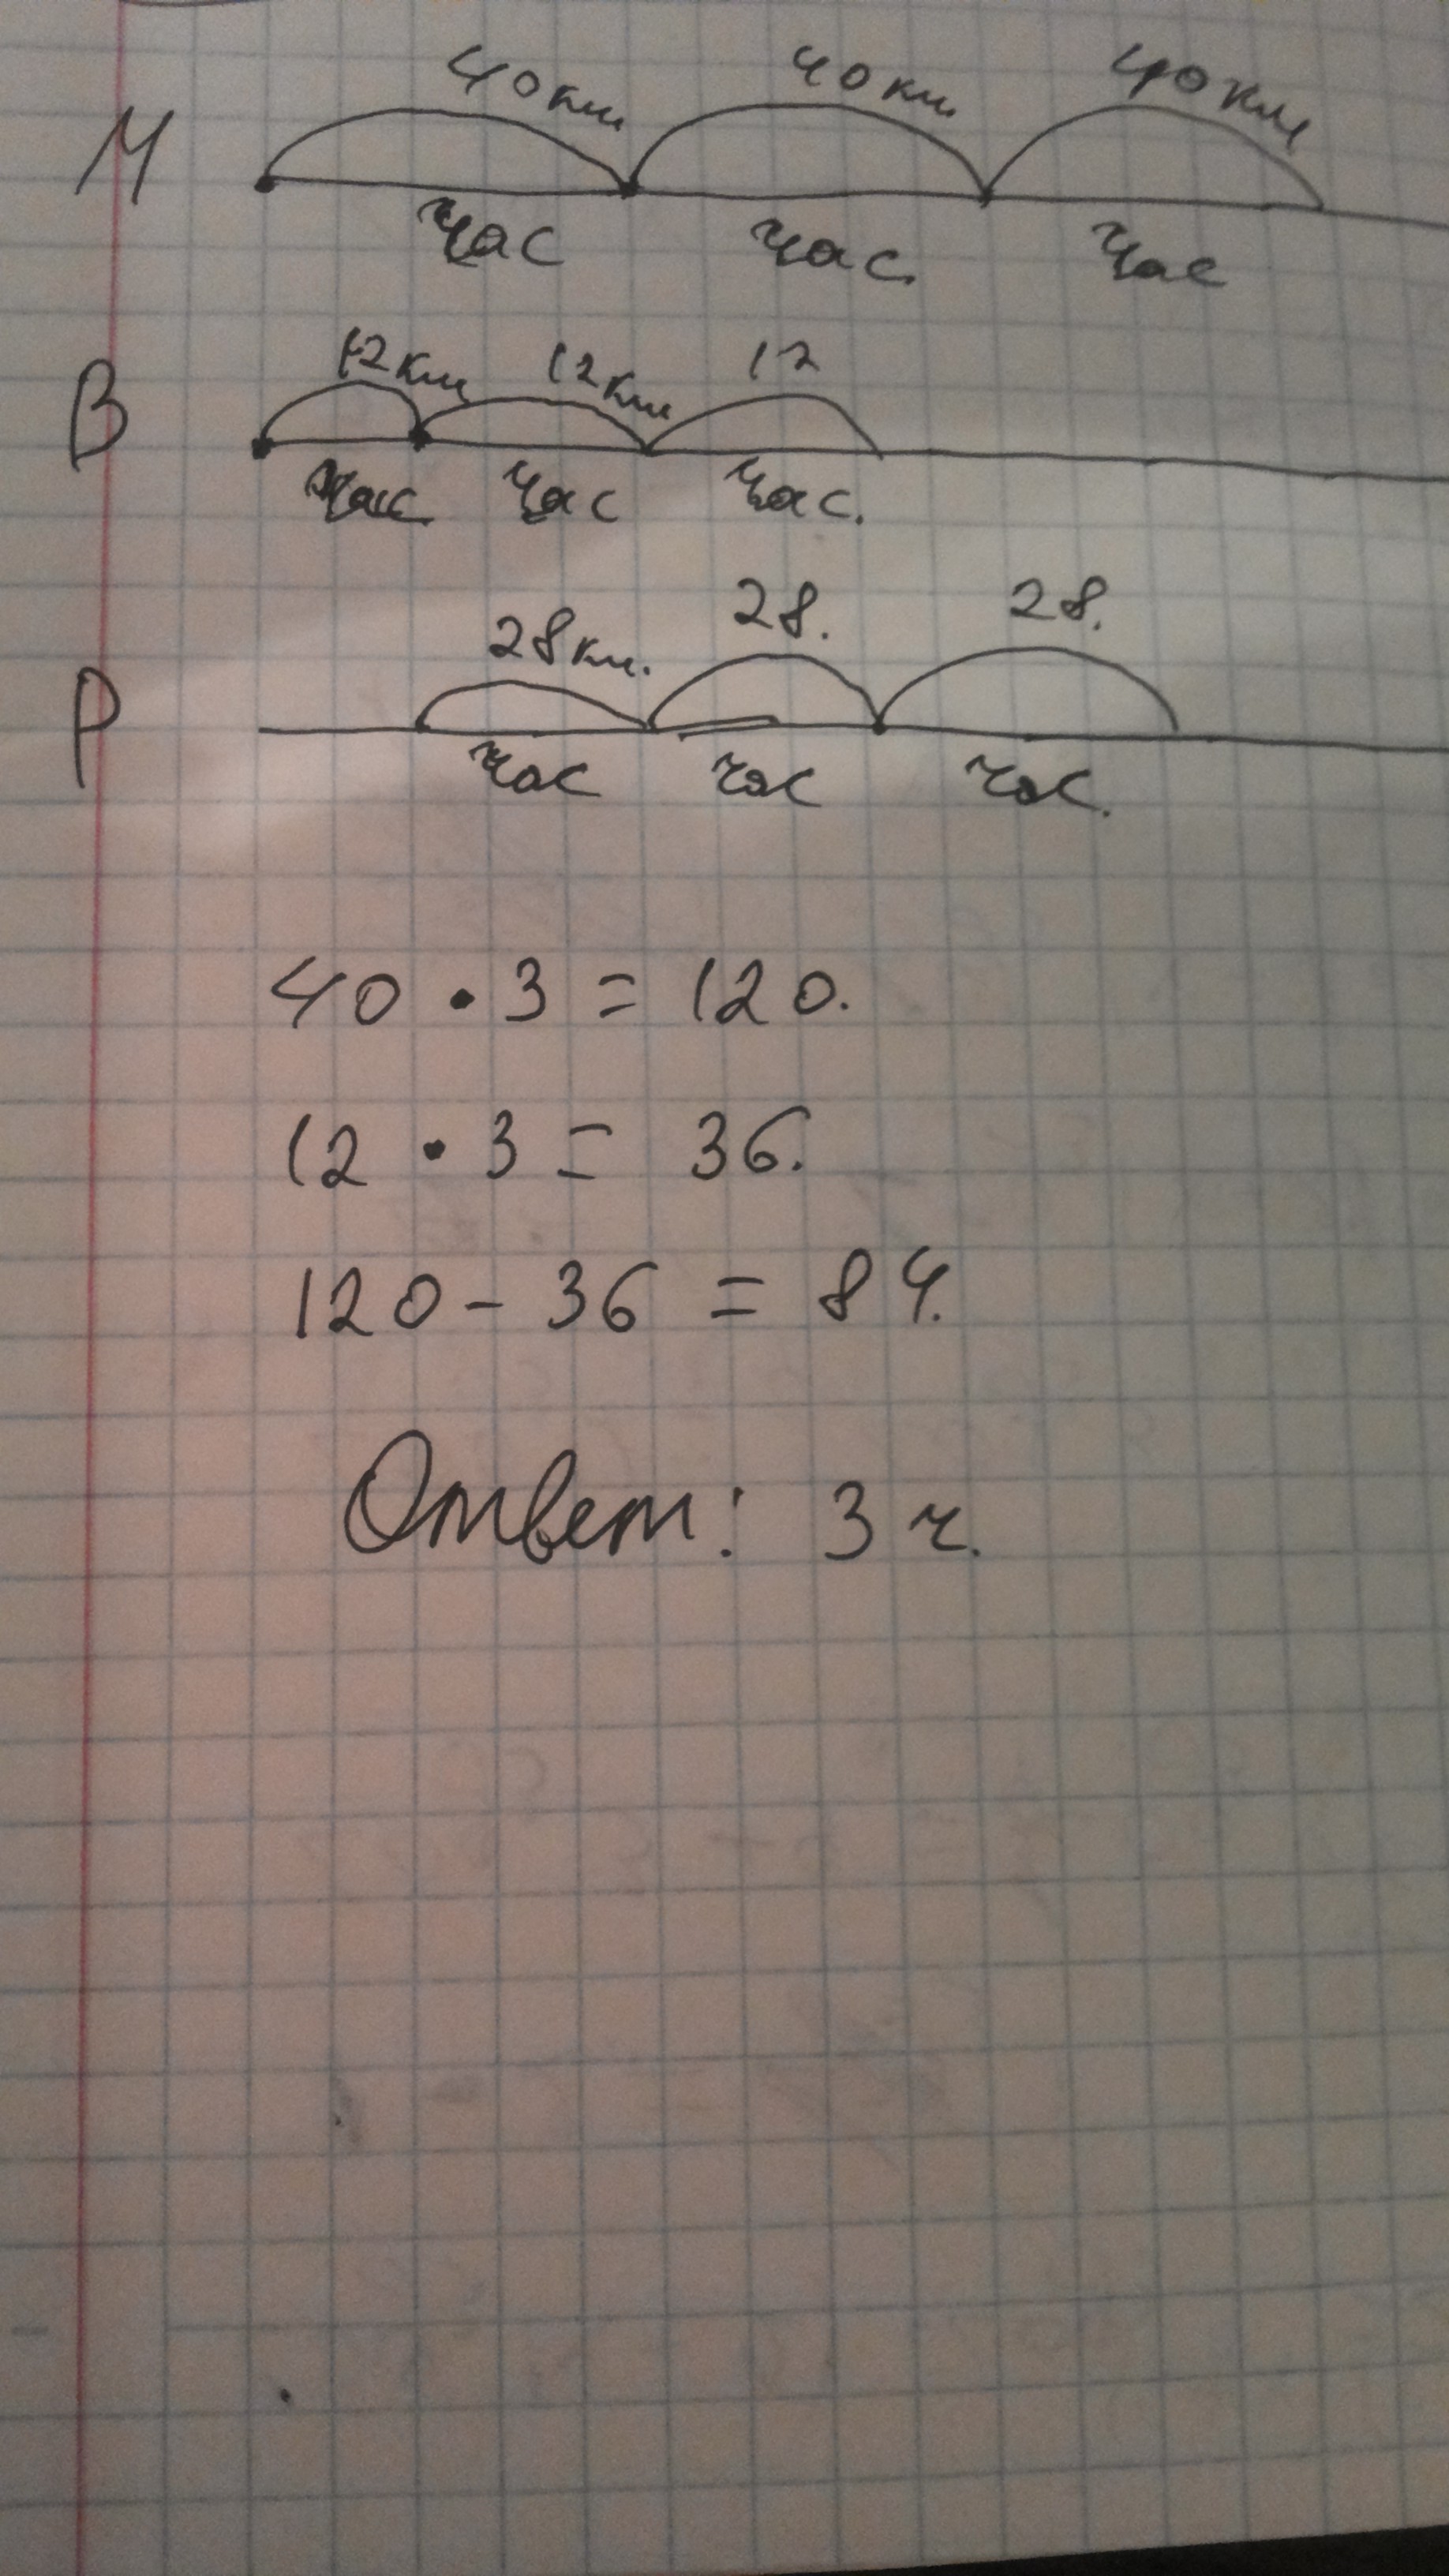 40км 40км 40км
М
час час. час
12км 12км 12
В
час час час.
28км. 28. 28.
Р
час час час.
40 · 3 = 120.
12 · 3 = 36.
120 - 36 = 84.
Ответ: 3 ч.